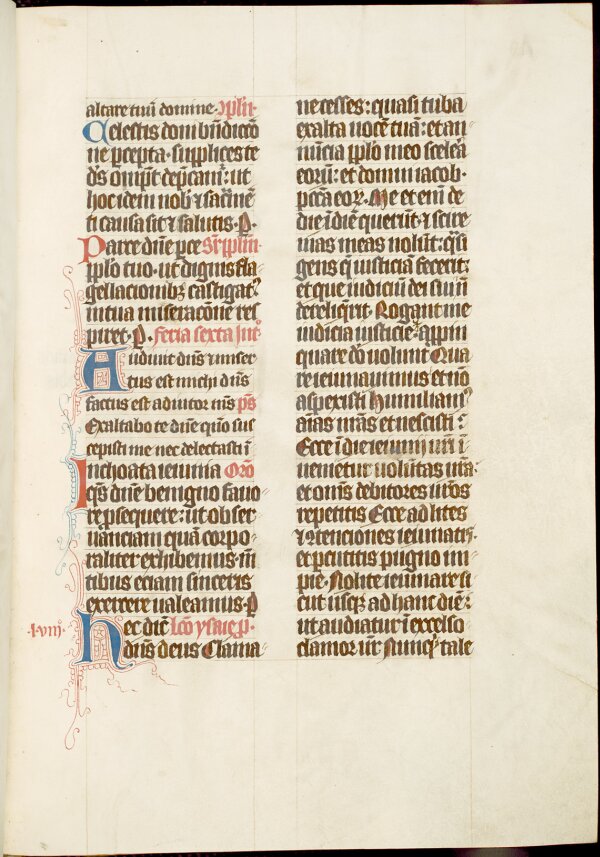 altare tuū domine· ɔplēn·
Celestis doni bn̄dictō
ne p̄cepta· supplices te
ds om̄pt dep̄cam̄: ut
hoc idem nob̄ ⁊ sacm̄ē
ti causa sit ⁊ salutis· P·
Parce dn̄e p̄ce sr̄ ppl̄m·
ppl̄o tuo· ut dignis fla
gellacionibꝫ castigat᷒
in tua miseracōne res
piret· P· feria sexta Int᷒
Audiuit dn̄s ⁊ miser
tus est michi dn̄s
factus est adiutor m̄s ps̄
Exaltabo te dn̄e qm̄o sus
cepisti me nec delectasti ī
Inchoata ieiunia Orō
q̄s dn̄e benigno fauo
re p̄sequere: ut obser
uanciam quā corpo
raliter exhibemus· m̄
tibus eciam sinceris
exercere ualeamus· P
·lviii· hec dic̄ lcō ysaie p·
dn̄s deus Clama
ne cesses: quasi tuba
exalta uocē tuā: et an
nūcia ppl̄o meo scelera
eorū: et domui iacob·
pctā eoꝝ· Me et eni de
die ī diē querūt ⁊ scire
uias meas nolūt: q̄si
gens q̄ iusticiā fecerit:
et que iudiciū dei sui nō
dereliq̄rit Rogant me
iudicia iusticie: appīn
quare dō nolunt Qua
re ieiunauimus et nō
aspexisti humiliam᷒
aīas n̄ras et nescisti:
Ecce ī die ieiunij ur̄i ī
uenietur uolūtas ura:
et om̄s debitores ur̄os
repetitis Ecce ad lites
⁊ ɔtenciones ieiunatis·
et p̄cutitis pugno im
pie· Nolite ieiunare si
cut usqꝫ ad hanc diē:
ut audiatur ī excelso
clamor ur̄· Nunqͥ tale